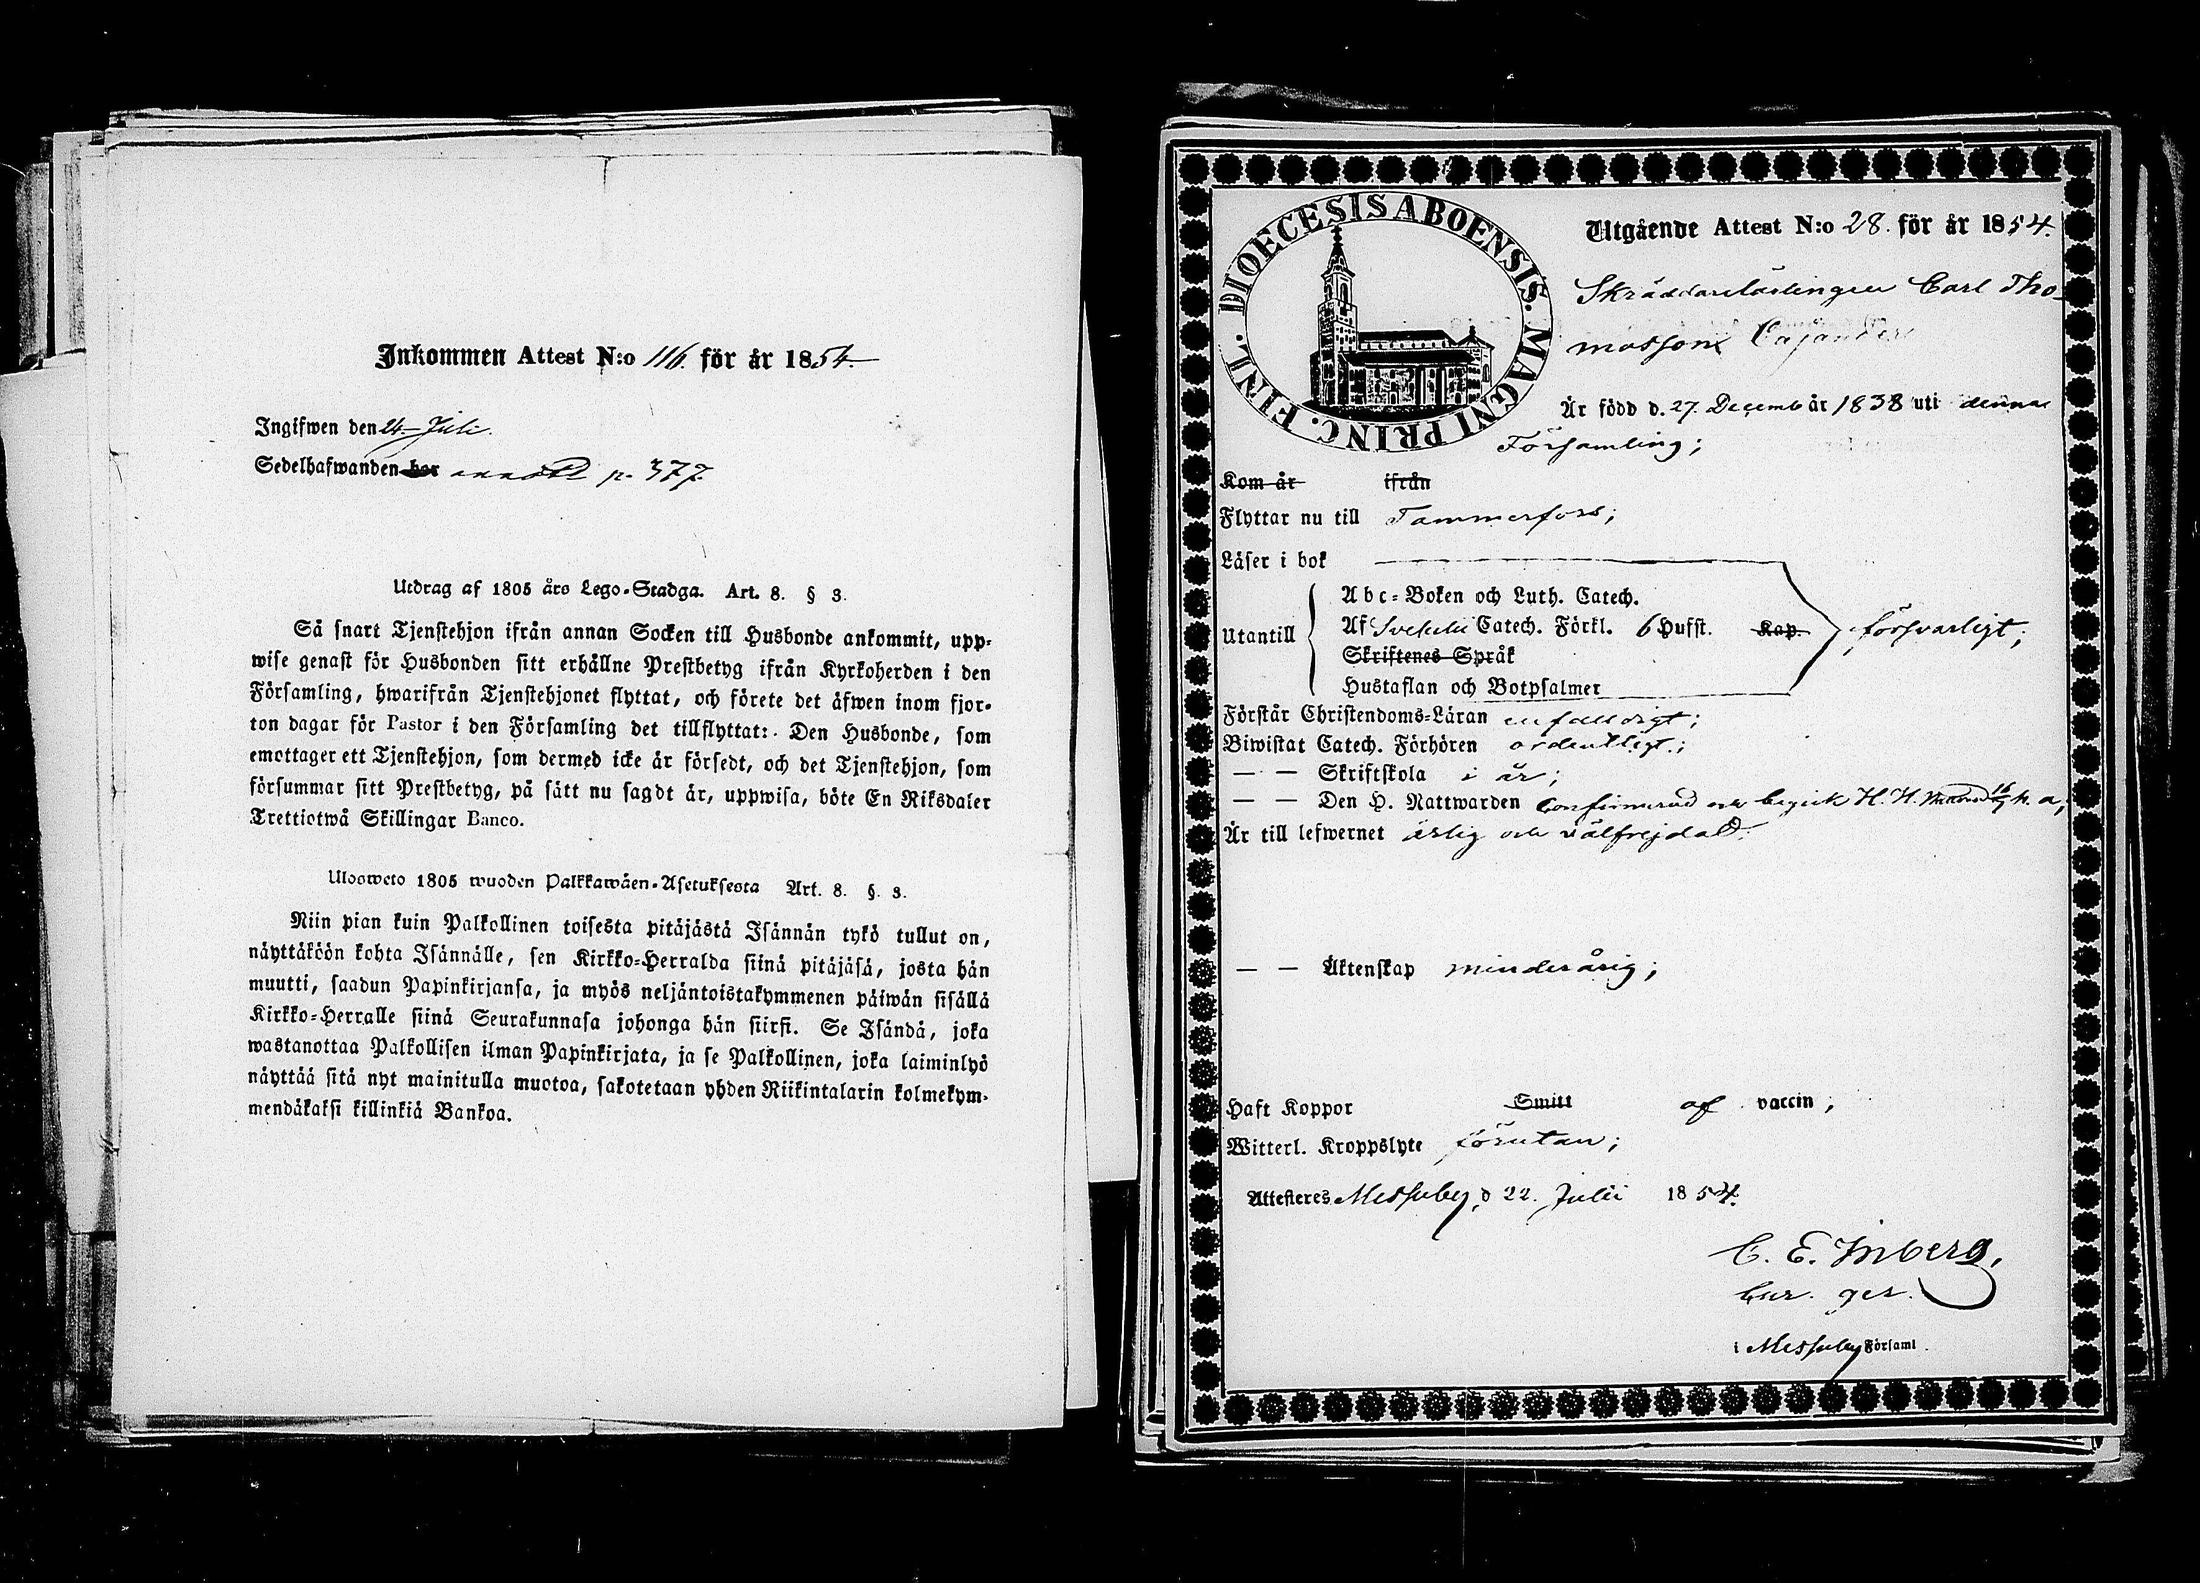 Inkommen Attest N:o 116. för år 1854.
Ingifwen den 24 Juli.
Sedelhafwanden har p. 377.
Utdrag af 1805 års Lego-Stadga. Art. 8. § 3.
Så snart Tjenstehjon ifrån annan Socken till Husbonde ankommit, upp-
wise genast för Husbonden sitt erhållne Prestbetyg ifrån Kyrkoherden i den
Församling, hwarifrån Tjenstehjonet flyttat, och förete det äfwen inom fjor-
ton dagar för Pastor i den Församling det tillflyttat: Den Husbonde, som
emottager ett Tjenstehjon, som dermed icke är försedt, och det Tjenstehjon, som
försummar sitt Prestbetyg, på sätt nu sagdt är, uppwisa, böte En Riksdaler
Trettiotwå Skillingar Banco.
Ulosweto 1805 wuoden Palkkawäen-Asetuksesta Art. 8. §. 3.
Niin pian kuin Palkollinen toisesta pitäjästä Isännän tykö tullut on,
näyttäköön kohta Isännälle, sen Kirkko-Herralda siinä pitäjäsä, josta hän
muutti, saadun Papinkirjansa, ja myös neljäntoistakymmenen päiwän sisällä
Kirkko-Herralle siinä Seurakunnasa johonga hän siirsi. Se Isändä, joka
wastanottaa Palkollisen ilman Papinkirjata, ja se Palkollinen, joka laiminlyö
näyttää sitä nyt mainitulla muotoa, sakotetaan yhden Riikintalarin kolmekym-
mendäkaksi killinkiä Bankoa.
DIOECESIS ABOENSIS. MAGNI PRINC. FINL.
Utgående Attest N:o 28. för år 1854.
Skräddarelärlingen Carl Tho-
masson Cajander
Är född d. 27. Decemb år 1838 uti denna
Församling;
Kom år ifrån
Flyttar nu till Tammerfors;
Läser i bok
Utantill
Abc-Boken och Luth. Catech.
Af Svebelii Catech. Förkl. 6 Hufst. Kap.
försvarligt;
Skriftenes Språk
Hustaflan och Botpsalmer
Förstår Christendoms-Läran enfalldigt;
Biwistat Catech. Förhören ordentligt;
— — Skriftskola i år;
— — Den H. Nattwarden Confirmerad och begick H. H. Nattvard 16/7 h. a.;
Är till lefwernet ärlig och välfrejdad.
— — Äktenskap minderårig;
Haft Koppor Smitt af vaccin;
Witterl. Kroppslyte förutan;
Attesteres Messuby, d 22. Julii 1854.
C. E. Inberg,
Cur. ger.
i Messuby Församl.